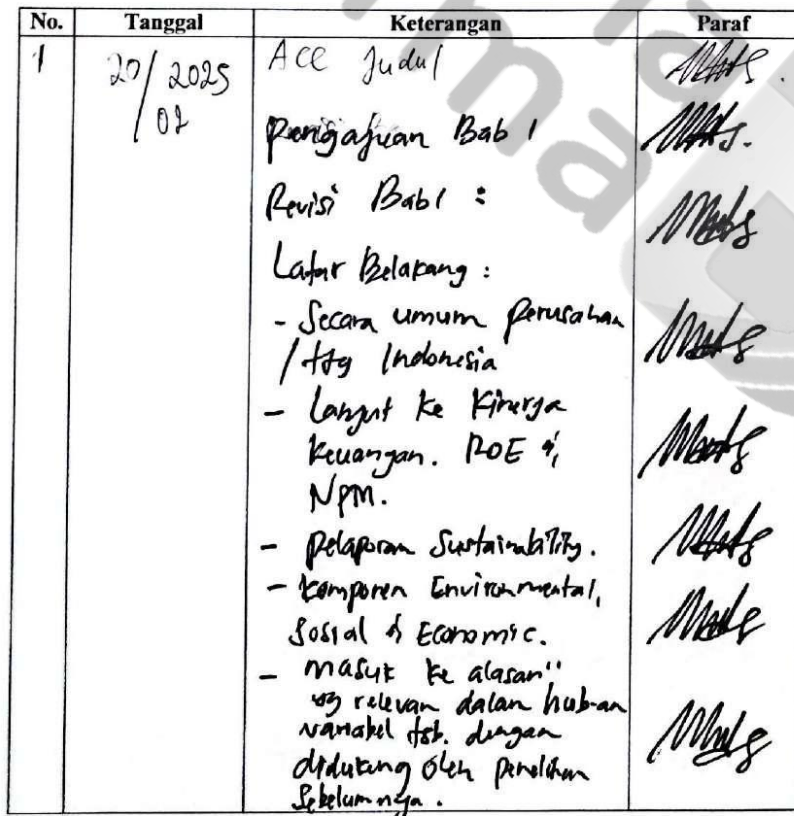 No. Tanggal Keterangan Paraf
1 20/02 2025 Acc Judul
Pengajuan Bab 1
Revisi Bab 1 :
Latar Belakang :
- Secara umum perusahaan
/ ttg Indonesia
- Lanjut ke Kinerja
Keuangan. ROE &
NPM.
- Pelaporan Sustainability.
- Komponen Environmental,
Sosial & Economic.
- masuk ke alasan"
yg relevan dalam hub-an
variabel tsb. dengan
didukung oleh penelitian
Sebelumnya.